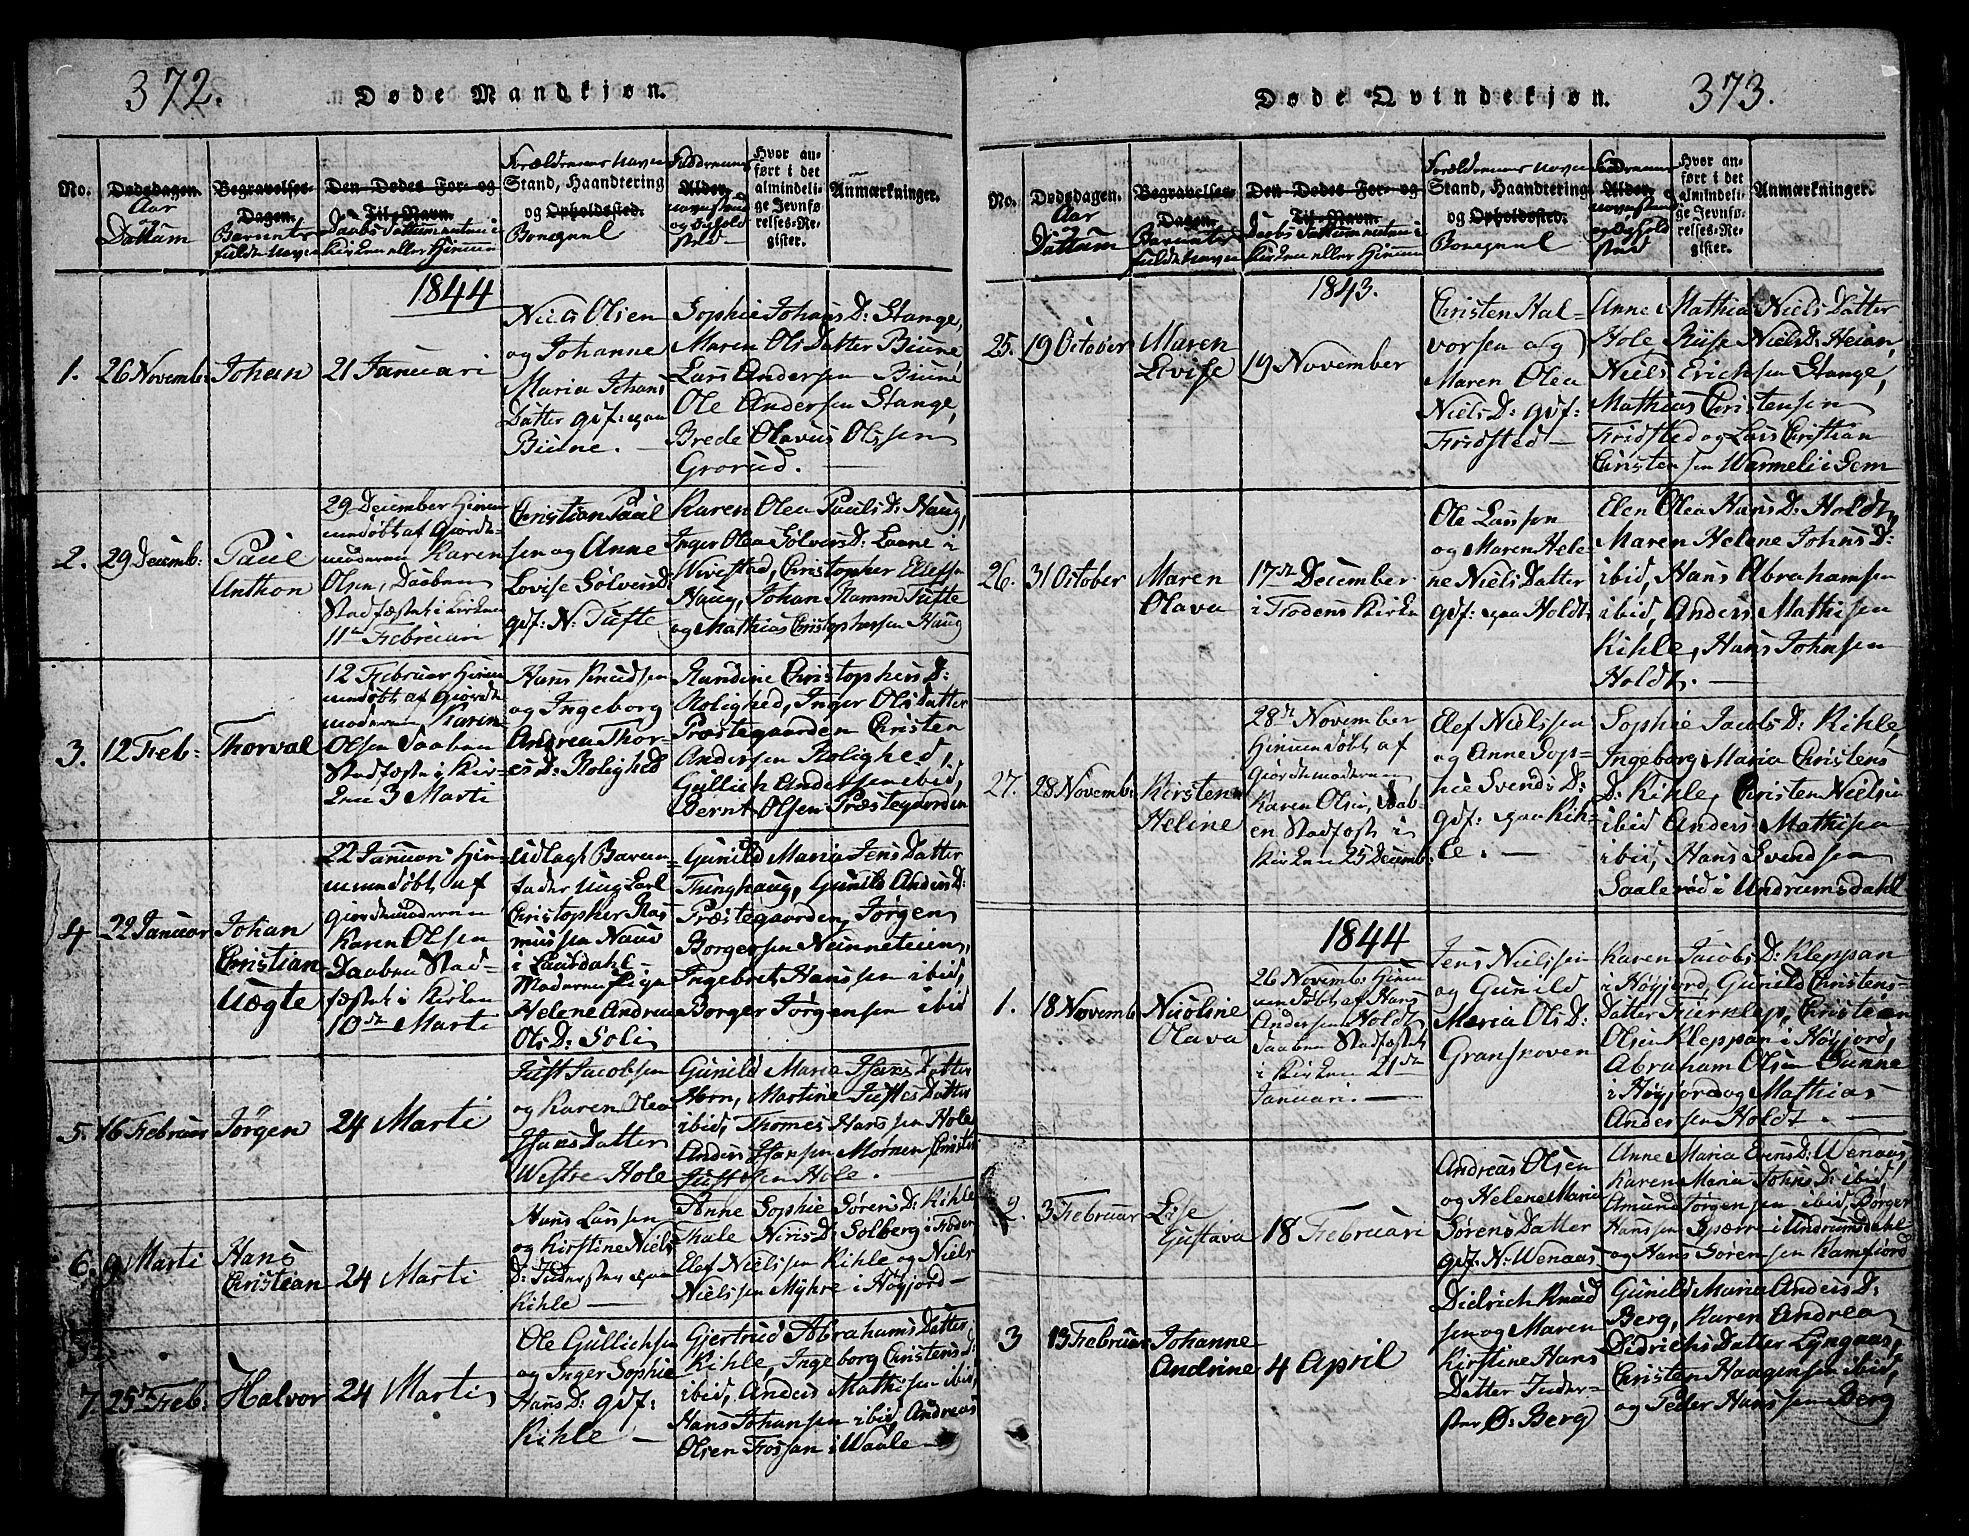 372.
Døde Mandkjøn.
No.
Dødsdagen.
Aar
og
Dattum
Begravelses-
Dagen.
Barnets
fulde Navn
Den Dødes For- og
Til-Navn.
Daabs Dattum enten i
Kirken eller Hiemme
Forældrenes Navn
Stand, Haandtering
og Opholdssted.
Boepæl
Faddrenes
Alder.
Navn, stand
og Ophold
sted
Hvor an-
ført i det
almindeli-
ge Jevnfø-
relses-Re-
gister.
Anmærkninger.
1844
1.
26 Novemb:
Johan
21 Januari
Niels Olsen
og Johanne
Maria Johans
Datter gdf: paa
Biune. —
Sophie Johans D: Stange,
Maren Ols Datter Biune,
Lars Andersen Biune
Ole Andersen Stange,
Brede Olavus Olssen
Grorud. —
2.
29 Decemb:
Paul
Anthon
29 December Hiem
mendøbt af Giorde
moderen Karen
Olsen, Daaben
Stadfæstet i Kirken
11te Februari
Christian Paul
sen og Anne
Lovise Sølvers D:
gdf: N: Tufte
Karen Olea Pauls D: Haug,
Inger Olea Sølvers D: Laane i
Wivestad, Christopher Elefsn
Haug, Johan Ramm Tufte
og Mathias Christophersen Haug
3.
12 Feb:
Thorval
12 Februar Hiem
mendøbt af Giorde
moderen Karen
Olsen Daaben
Stadfæstet i Kir-
ken 3 Marti
Hans Knudsen
og Ingeborg
Andrea Thor-
es D: Rolighed
Randine Christophers D:
Rolighed, Inger Ols Datter
Præstegaarden Christen
Andersen Rolighed,
Gullich Andersen ibid,
Bernt Olsen Præstegaarden
4
22 Januar
Johan
Christian
Uægte
22 Januari Hiem-
mendøbt af
Giordemoderen
Karen Olsen
Daaben Stad-
fæstet i Kirken
10de Marti
Udlagt Barne-
fader Ung Carl
Christopher Ras
mussen Naus
i Laurdahl —
Moderen Pige
Helene Andrea
Ols D: Soli
Gunild Maria Jens Datter
Tinghaug, Gunild Anders D:
Præstegaarden, Jørgen
Borgersen Nenneteien,
Ingebret Hanssen ibid,
Borger Jørgensen ibid
5.
16 Februar
Jørgen
24 Marti
Just Jacobsen
og Karen Olea
Isaks Datter
Westre Hole
Gunild Maria Isaks Datter
Horn, Martine Justes Datter
ibid, Thomes Hanssen Hole
Anders Isaksen Mørnen, Christen
Justesen Hole.
6.
9 Marti
Hans
Christian
24 Marti
Hans Larssen
og Kirstine Niels
D: Inderster paa
Kihle —
Anne Sophie Sørens D: Kihle
Thale Niris D: Solberg i Foden
Elef Nielssen Kihle og Niels
Nielssen Myhre i Høyjord —
7.
25de Feb:
Halvor
24 Marti
Ole Gullichsen
og Inger Sophie
Hans D: gdf:
Kihle —
Gjertrud Abrahams Datter
Kihle, Ingeborg Christens D:
ibid, Anders Mathisen ibid,
Hans Johansen ibid, Andreas
Olsen Fossan i Waale —
373.
Døde Qvindekjøn.
No.
Dødsdagen.
Aar
Dattum
Begravelses-
Dagen.
Barnets
fulde Navn
Den Dødes For- og
Til-Navn.
Daabs Dattum enten i
Kirken eller Hiemme
Forældrenes Navn
Stand, Haandtering
og Opholdssted.
Boepæl
Faddrenes
Alder.
Navn, stand
og Ophold
sted
Hvor an-
ført i det
almindeli-
ge Jevnfø-
relses-Re-
gister.
Anmærkninger.
1843.
25.
19 October
Maren
Lovise
19 November
Christen Hal-
vorsen og
Maren Olea
Niels D: gdf:
Fridsted —
Anne Mathia Niels Datter
Hole Riise Niels D: Heian,
Niels Erichsen Stange,
Mathias Christensen
Fridsted og Lars Christian
Christensen Warmeli i Sem
26.
31 October
Maren
Olava
17de December
i Fodens Kirke
Ole Larssen
og Maren Hele-
ne Niels Datter
gdf: paa Holdt,
Elen Olea Hans D: Holdt,
Maren Helene Johns D:
ibid, Hans Abrahamsen
ibid, Anders Mathisen
Kihle, Hans Johnsen
Holdt. —
27.
28 Novemb:
Kirsten
Heline
28de November
Hiemmendøbt af
Giordemoderen
Karen Olsen, Daab-
en Stadfæstet i
Kirken 25 Decemb.
Elef Nielssen
og Anne Sop-
hie Svends D:
gdf: paa Kih-
le. —
Sophie Jacobs D: Kihle,
Ingeborg Maria Christens
D: Kihle, Christen Nielsen
ibid Anders Mathisen
ibid, Hans Svendsen
Saalerød i Undrumsdahl
1844
1.
18 Novemb
Nicoline
Olava
26 Novemb: Hiem
mendøbt af Hans
Andersen Holdt
Daaben Stadfæstet
i Kirken 21de
Januari. —
Jens Nielssen
og Gunild
Maria Ols D:
Granskoven
Karen Jacobs D: Kleppan
i Høyjord, Gunild Christens-
Datter Furklep, Christian
Olsen Kleppan i Høyjord,
Abraham Olsen Sunne
i Høyjord og Mathias
Anderssen Holdt. —
2.
3 Februar
Lise
Gustava
18 Februari
Andreas Olsen
og Helene Maria
Sørens Datter
gdf: N: Wenaas
Anne Maria Evens D: Wenaas,
Karen Maria Johns D: ibid,
Amund Jørgensen ibid, Børger
Hanssen Spærr i Andrumsdahl
og Hans Sørensen Ramfjord
3
13 Februar
Johanne
Andrine
4 April
Didrich Knud
sen og Maren
Kirstine Hans
Datter Inder-
ster Ø: Berg
Gunild Maria Anders D:
Berg, Karen Andrea
Didrichs Datter Lyngaas,
Christen Haagensen ibid,
og Peder Hanssen Berg